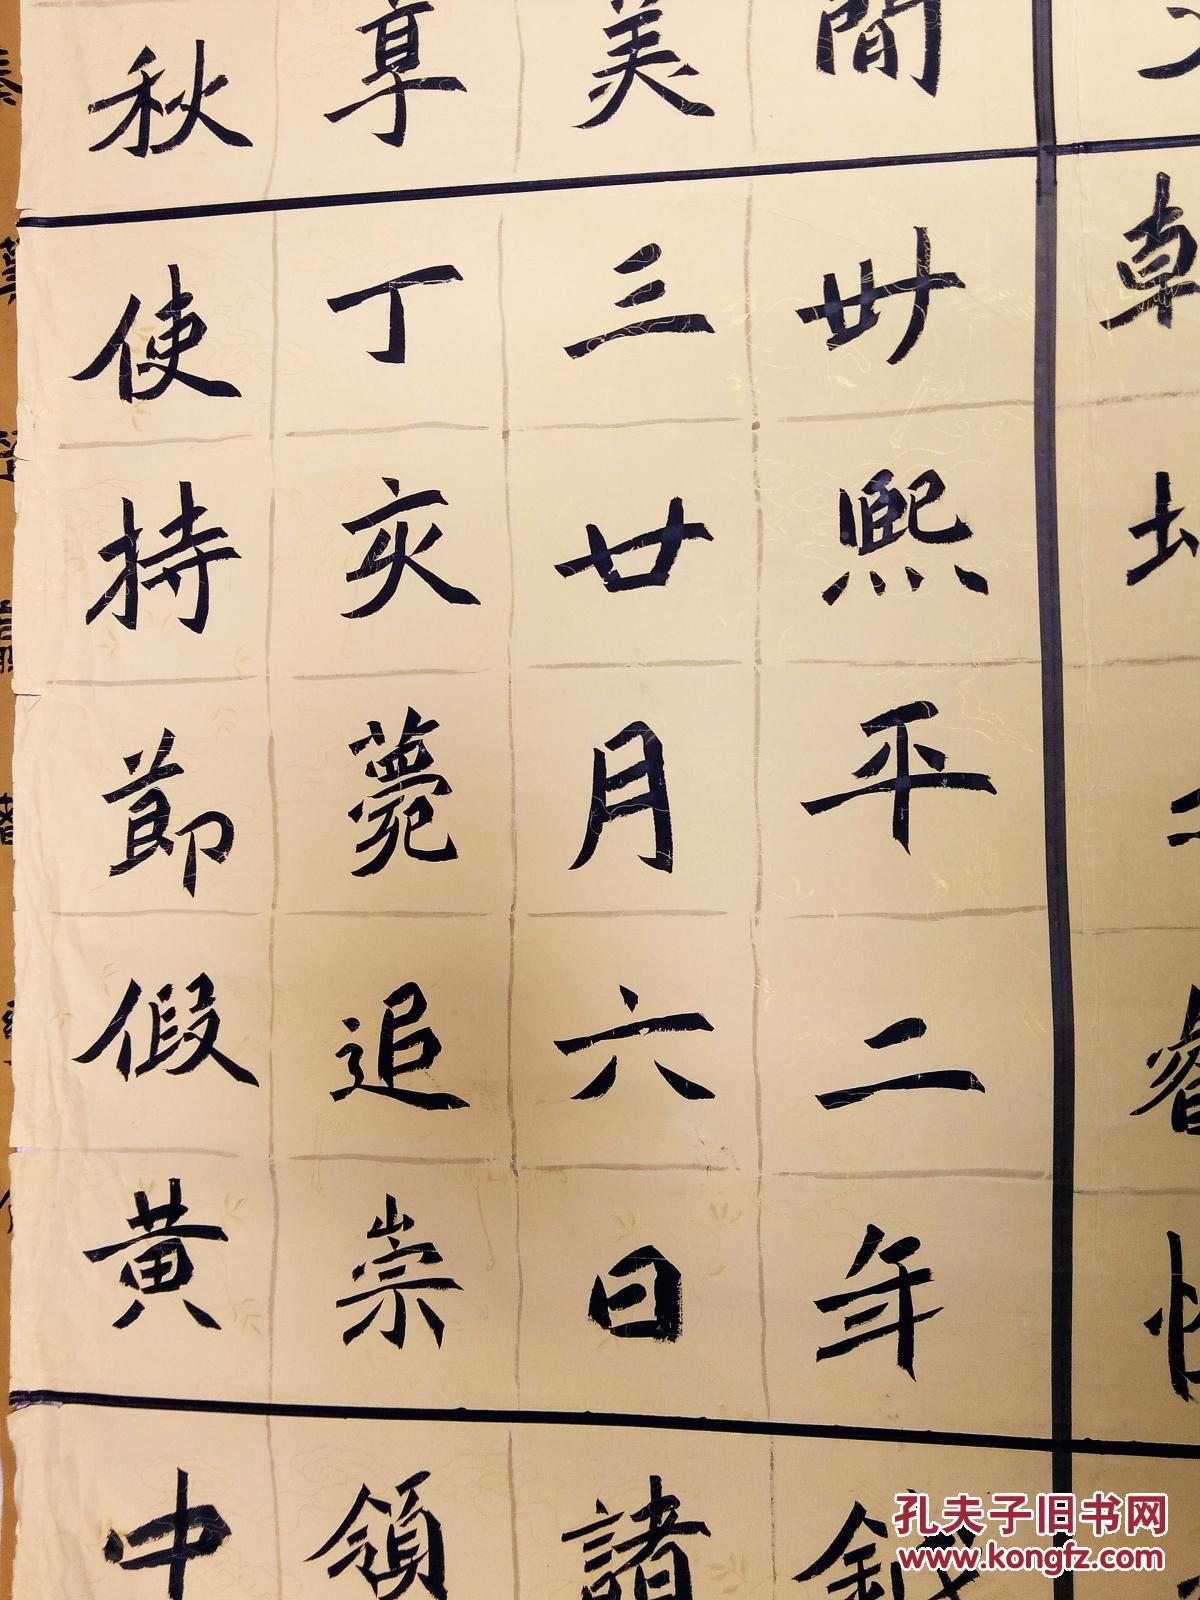 閒
美
享
秋
卅熙平二年
三廿月六日
丁亥薨追崇
使持節假黄
鉞
諸
領
中
孔夫子旧书网
www.kongfz.com